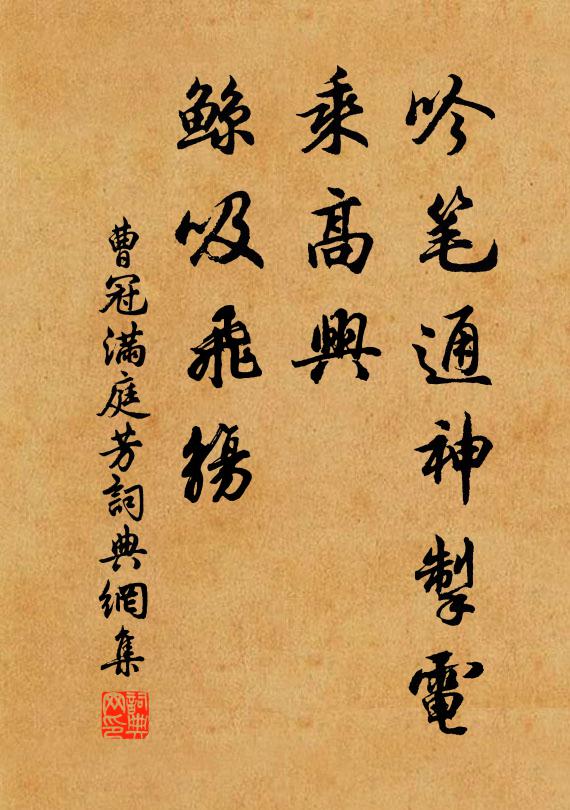 吟笔通神掣電
乘高興
鲸吸飛觴
曹冠滿庭芳詞典網集
詞典网印